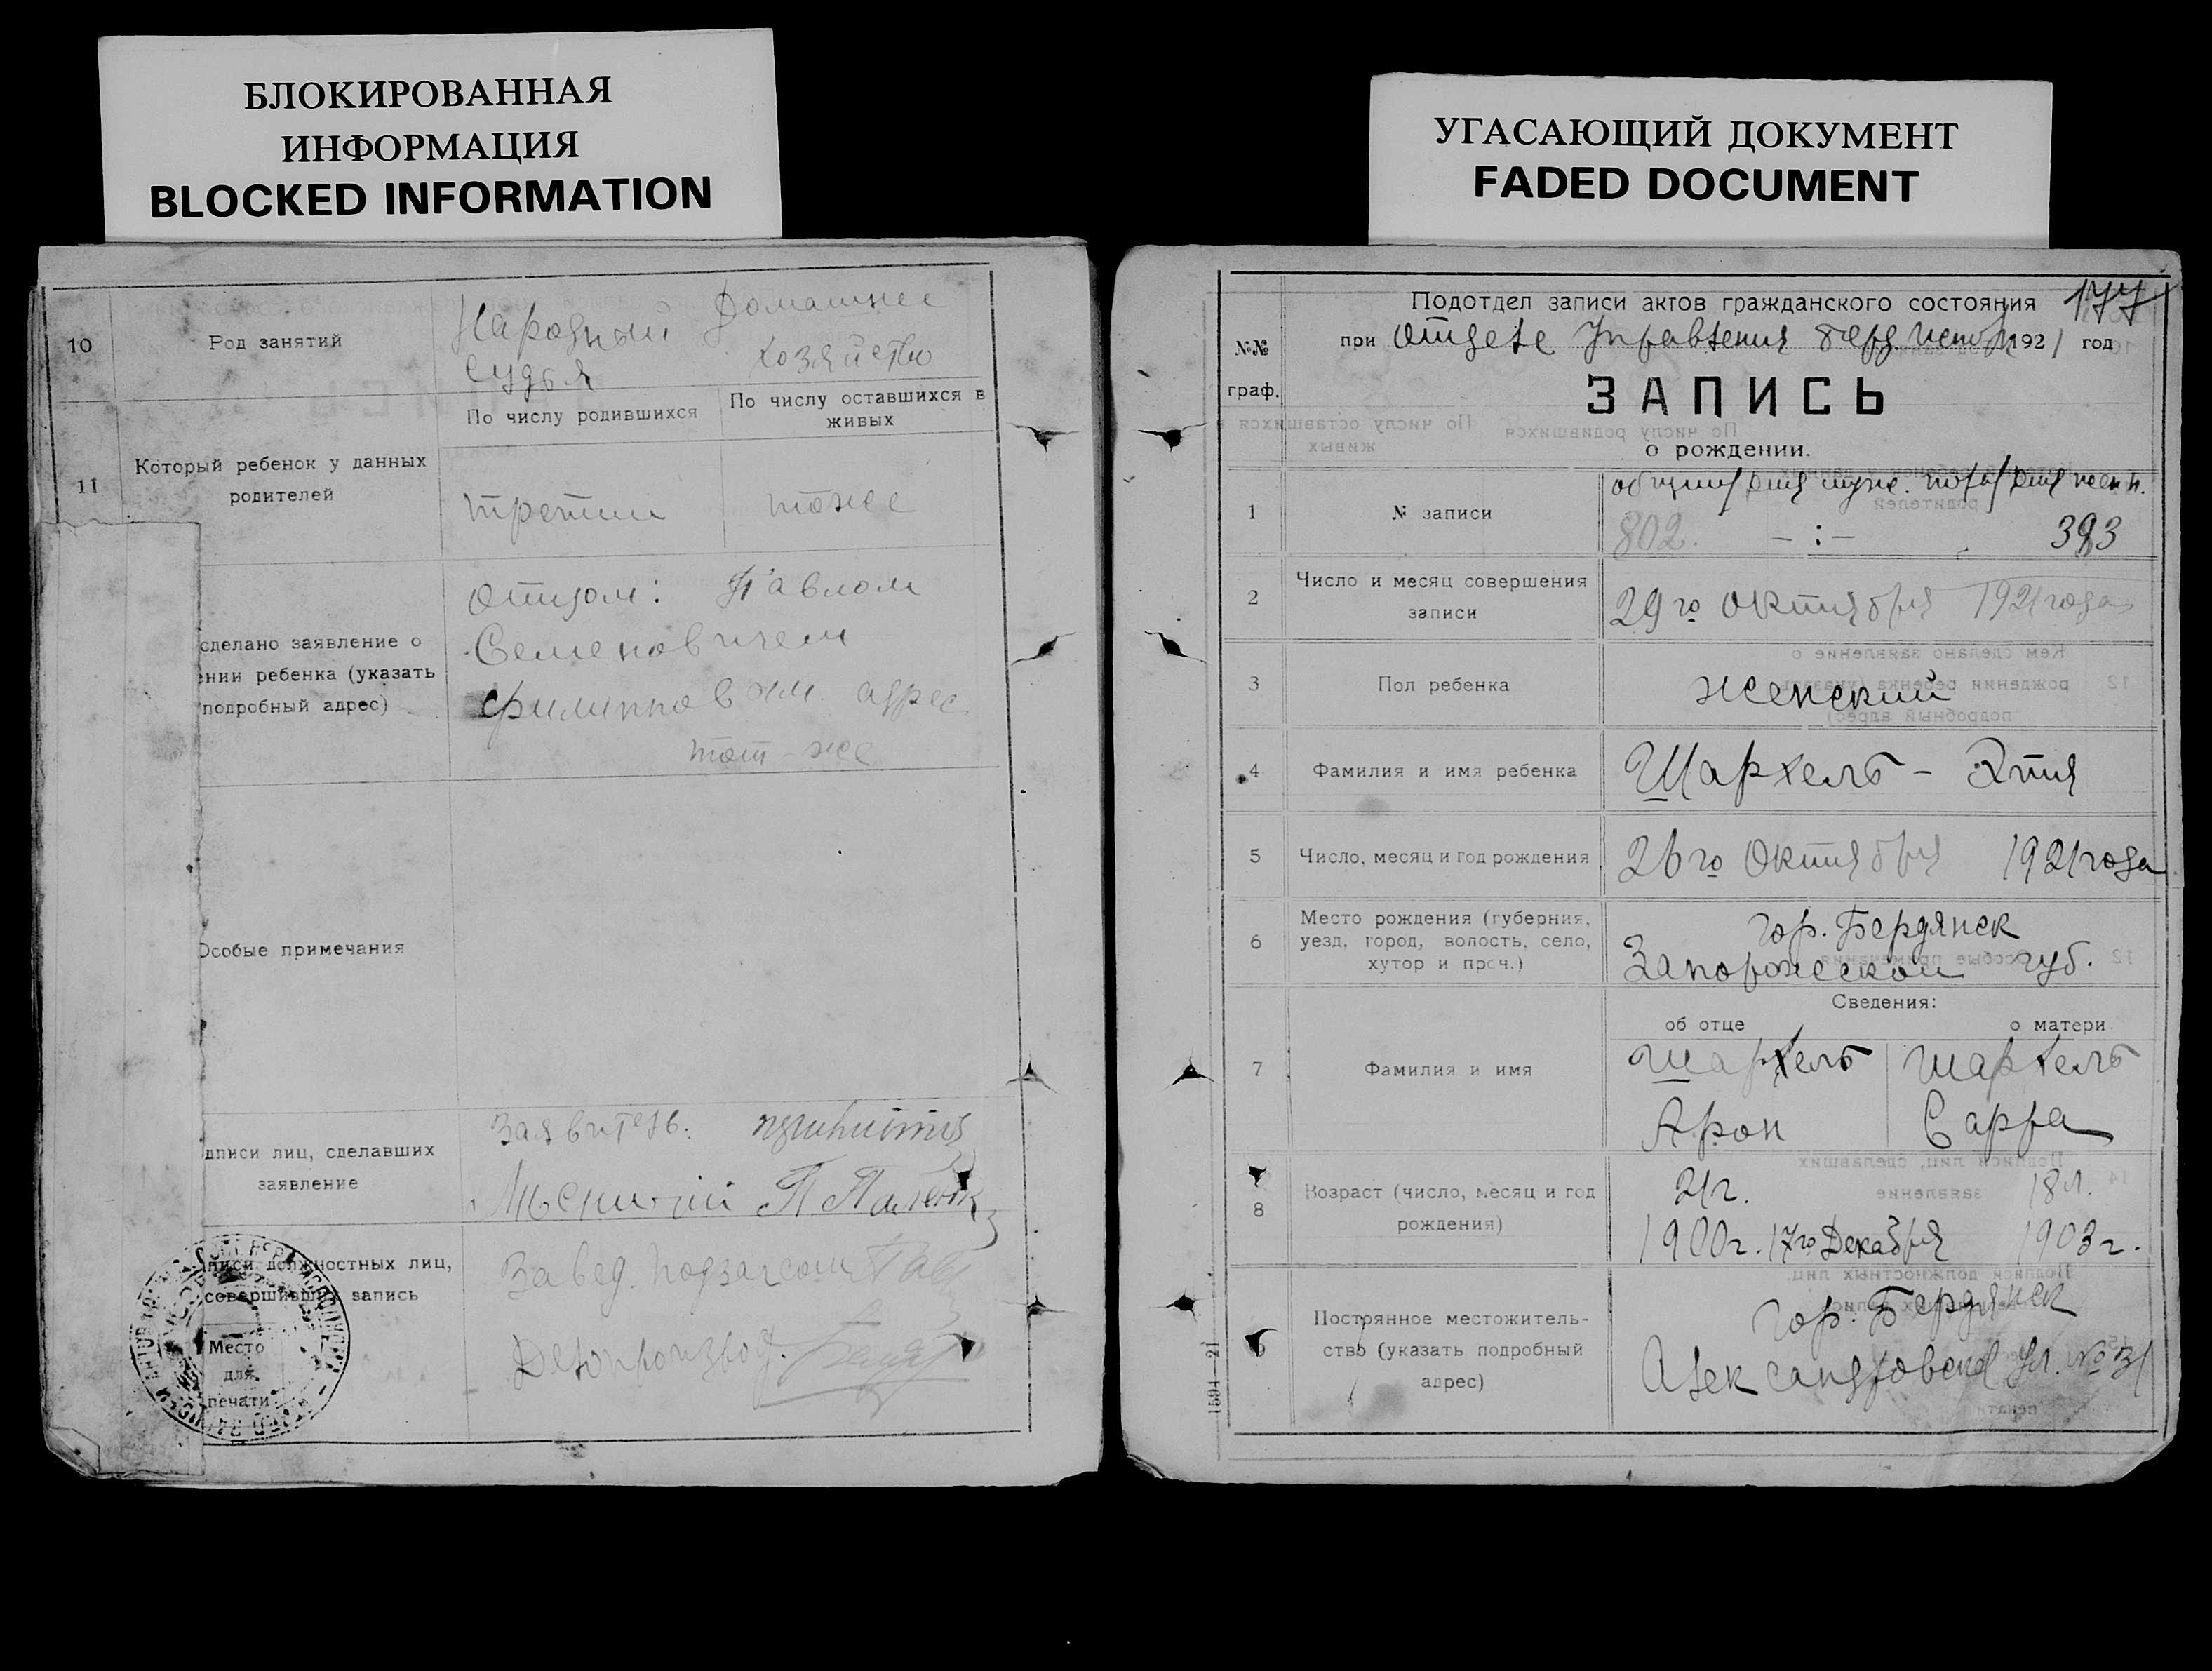 БЛОКИРОВАННАЯ
ИНФОРМАЦИЯ
BLOCKED INFORMATION
10
Род занятий
Народный
судья
Домашнее
хозяйство
11
Который ребенок у данных
родителей
По числу родившихся
По числу оставшихся в
живых
третий
тоже
сделано заявление о
ении ребенка (указать
подробный адрес)
Отцом: Павлом
Семеновичем
Филипповым. адрес
тот-же
Особые примечания
дписи лиц, сделавших
заявление
Заявитель:
дписи должностных лиц,
совершивших запись
Место
для
печати
Завед. подзагсом
Делопроизвод.
УГАСАЮЩИЙ ДОКУМЕНТ
FADED DOCUMENT
177
№№
граф.
Подотдел записи актов гражданского состояния
при Отделе Управления Берд. 1921 год
ЗАПИСЬ
о рождении.
1
№ записи
общий для муж. пола для женп.
802. -:- 393
2
Число и месяц совершения
записи
29го Октября 1921 года
3
Пол ребенка
женский
4
Фамилия и имя ребенка
Шархель - Этя
5
Число, месяц и год рождения
26го Октября 1921 года
6
Место рождения (губерния,
уезд, город, волость, село,
хутор и проч.)
гор. Бердянск
Запорожской губ.
Сведения:
об отце
о матери
7
Фамилия и имя
Шархель
Арон
Шархель
Сарра
8
Возраст (число, месяц и год
рождения)
21г.
1900г. 17го Декабря
18л.
1903г.
9
Постоянное местожитель-
ство (указать подробный
адрес)
гор. Бердянск
Александровская ул. № 31
1594-21